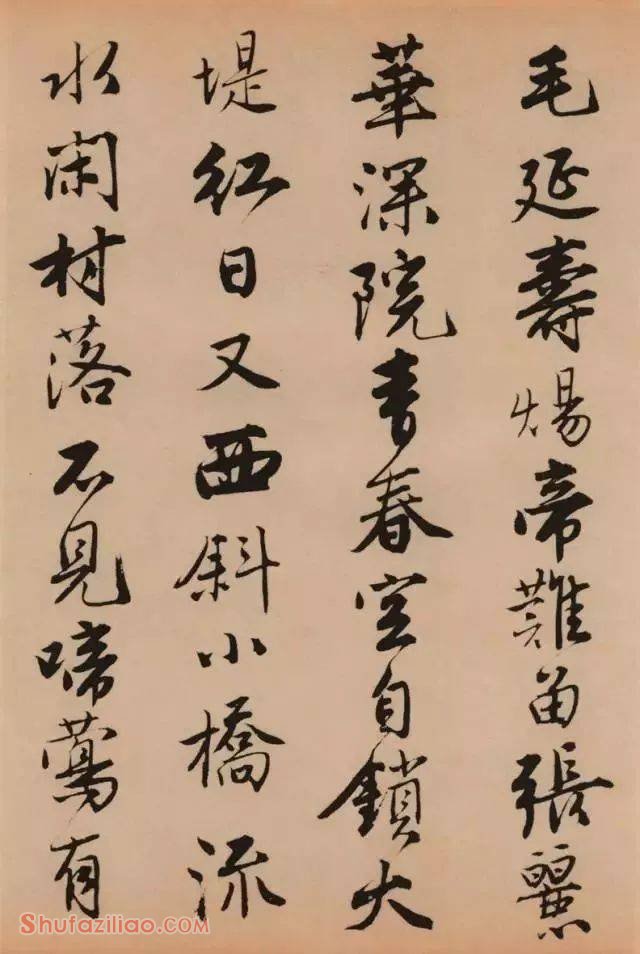 毛延壽煬帝難留張麗
華深院青春空自鎖大
堤紅日又西斜小橋流
水閑村落不見啼鶯有
Shufaziliao.com